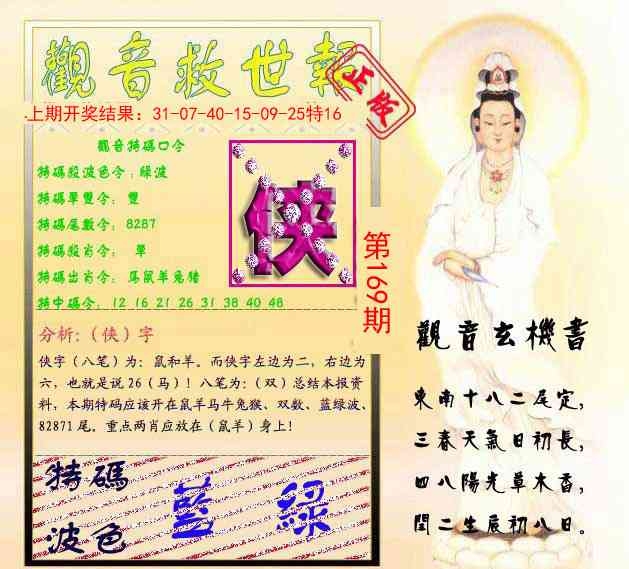 觀音救世報
正版
上期开奖结果：31-07-40-15-09-25特16
觀音特碼口令
特碼殺波色令：綠波
特碼單雙令： 雙
特碼尾數令： 8287
特碼殺肖令： 單
特碼出肖令： 馬鼠羊兔豬
特中碼令： 12 16 21 26 31 38 40 48
俠
第169期
分析:（俠）字
俠字（八笔）为：鼠和羊。而俠字左边为二，右边为
六，也就是说26（马）！八笔为：（双）总结本报资
料，本期特码应该开在鼠羊马牛兔猴、双数、蓝绿波、
82871尾。重点两肖应放在（鼠羊）身上！
特碼
波色
藍 綠
觀音玄機書
東南十八二尾定，
三春天氣日初長，
四八陽光草木香，
閏二生辰初八日。